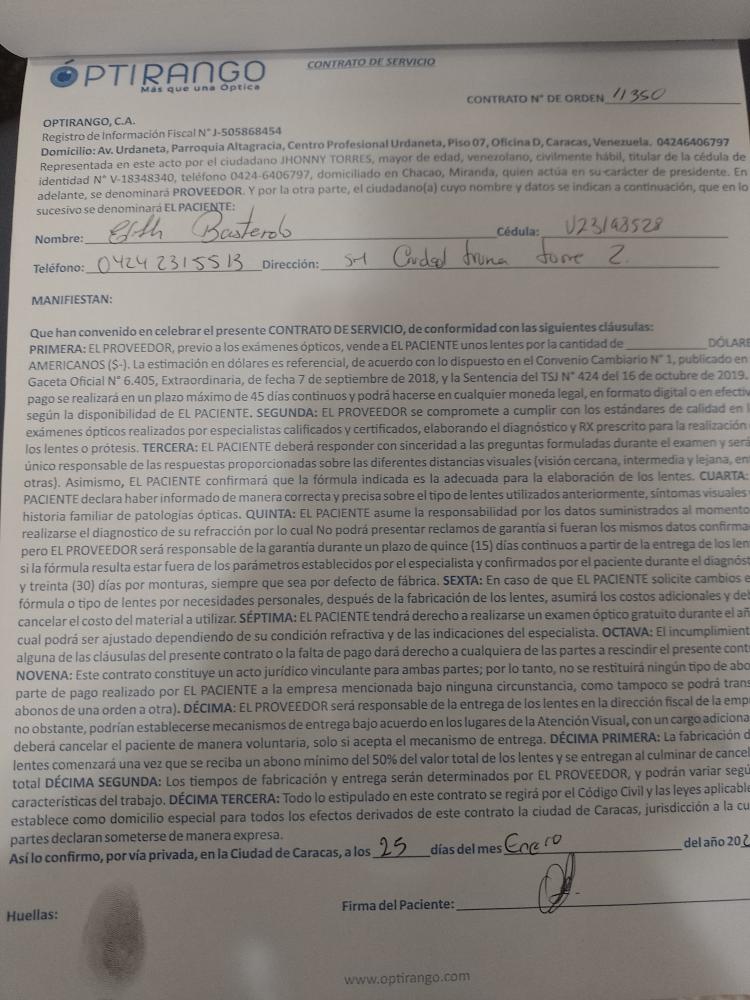 ÓPTIRANGO
Más que una Óptica
CONTRATO DE SERVICIO
CONTRATO N° DE ORDEN 11350
OPTIRANGO, C.A.
Registro de Información Fiscal N° J-505868454
Domicilio: Av. Urdaneta, Parroquia Altagracia, Centro Profesional Urdaneta, Piso 07, Oficina D, Caracas, Venezuela. 04246406797
Representada en este acto por el ciudadano JHONNY TORRES, mayor de edad, venezolano, civilmente hábil, titular de la cédula de
identidad N° V-18348340, teléfono 0424-6406797, domiciliado en Chacao, Miranda, quien actúa en su carácter de presidente. En
adelante, se denominará PROVEEDOR. Y por la otra parte, el ciudadano(a) cuyo nombre y datos se indican a continuación, que en lo
sucesivo se denominará EL PACIENTE:
Nombre: Cédula:
Teléfono: 0424 2315513 Dirección: Torre 2.
MANIFIESTAN:
Que han convenido en celebrar el presente CONTRATO DE SERVICIO, de conformidad con las siguientes cláusulas:
PRIMERA: EL PROVEEDOR, previo a los exámenes ópticos, vende a EL PACIENTE unos lentes por la cantidad de DÓLARE
AMERICANOS ($-). La estimación en dólares es referencial, de acuerdo con lo dispuesto en el Convenio Cambiario N° 1, publicado en
Gaceta Oficial N° 6.405, Extraordinaria, de fecha 7 de septiembre de 2018, y la Sentencia del TSJ N° 424 del 16 de octubre de 2019.
pago se realizarán en un plazo máximo de 45 días continuos y podrá hacerse en cualquier moneda legal, en formato digital o en efectiv
según la disponibilidad de EL PACIENTE. SEGUNDA: EL PROVEEDOR se compromete a cumplir con los estándares de calidad en l
exámenes ópticos realizados por especialistas calificados y certificados, elaborando el diagnóstico y RX prescrito para la realización
los lentes o prótesis. TERCERA: EL PACIENTE deberá responder con sinceridad a las preguntas formuladas durante el examen y será
único responsable de las respuestas proporcionadas sobre las diferentes distancias visuales (visión cercana, intermedia y lejana, en
otras). Asimismo, EL PACIENTE confirmará que la fórmula indicada es la adecuada para la elaboración de los lentes. CUARTA:
PACIENTE declara haber informado de manera correcta y precisa sobre el tipo de lentes utilizados anteriormente, síntomas visuales
historia familiar de patologías ópticas. QUINTA: EL PACIENTE asume la responsabilidad por los datos suministrados al momento
realizarse el diagnostico de su refracción por lo cual No podrá presentar reclamos de garantía si fueran los mismos datos confirma
pero EL PROVEEDOR será responsable de la garantía durante un plazo de quince (15) días continuos a partir de la entrega de los len
si la fórmula resulta estar fuera de los parámetros establecidos por el especialista y confirmados por el paciente durante el diagnóst
y treinta (30) días por monturas, siempre que sea por defecto de fábrica. SEXTA: En caso de que EL PACIENTE solicite cambios e
fórmula o tipo de lentes por necesidades personales, después de la fabricación de los lentes, asumirá los costos adicionales y del
cancelar el costo del material a utilizar. SÉPTIMA: EL PACIENTE tendrá derecho a realizarse un examen óptico gratuito durante el añ
cual podrá ser ajustado dependiendo de su condición refractiva y de las indicaciones del especialista. OCTAVA: El incumplimient
alguna de las cláusulas del presente contrato o la falta de pago dará derecho a cualquiera de las partes a rescindir el presente cont
NOVENA: Este contrato constituye un acto jurídico vinculante para ambas partes; por lo tanto, no se restituirá ningún tipo de abo
parte de pago realizado por EL PACIENTE a la empresa mencionada bajo ninguna circunstancia, como tampoco se podrá trans
abonos de una orden a otra). DÉCIMA: EL PROVEEDOR será responsable de la entrega de los lentes en la dirección fiscal de la emp
no obstante, podrían establecerse mecanismos de entrega bajo acuerdo en los lugares de la Atención Visual, con un cargo adiciona
deberá cancelar el paciente de manera voluntaria, solo si acepta el mecanismo de entrega. DÉCIMA PRIMERA: La fabricación d
lentes comenzará una vez que se reciba un abono mínimo del 50% del valor total de los lentes y se entregan al culminar de cancel
total DÉCIMA SEGUNDA: Los tiempos de fabricación y entrega serán determinados por EL PROVEEDOR, y podrán variar segú
características del trabajo. DÉCIMA TERCERA: Todo lo estipulado en este contrato se regirá por el Código Civil y las leyes aplicable
establece como domicilio especial para todos los efectos derivados de este contrato la ciudad de Caracas, jurisdicción a la cu
partes declaran someterse de manera expresa.
Así lo confirmo, por vía privada, en la Ciudad de Caracas, a los 25 días del mes Enero del año 202
Huellas:
Firma del Paciente:
www.optirango.com